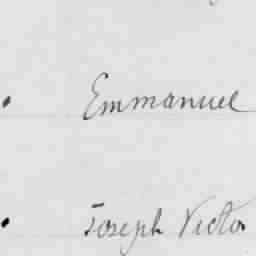 Emmanuel
Joseph Victor